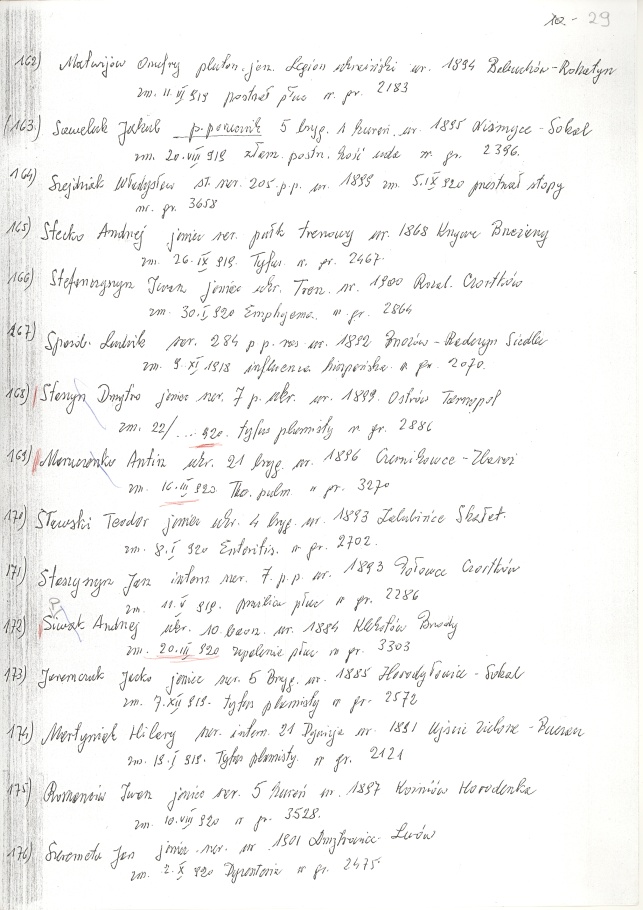 10. - 29
162) Matwijów Onufry pluton. jen. Legion ukraiński ur. 1894 Bełuchów-Rohatyn
zm. 11. VI 919 postrzał płuc nr. gr. 2183
163.) Saweluk Jakub p. porucznik 5 bryg. 1 kureń. ur. 1895 - Sokal
zm. 20. VIII 919 złam. postrz. kość uda nr. gr. 2396.
164) Władysław st. szer. 205. p.p. ur. 1899 zm. 5. IX 920 postrzał stopy
nr. gr. 3658
165) Stecko Andrej jeniec szer. pułk trenowy ur. 1868 Brzeżany
zm. 26. IX 919. Tyfus nr. gr. 2467.
166) Iwan jeniec ukr. Tren. ur. 1900 Rosol. Czortków
zm. 30. I 920 Emphyema nr. gr. 2864
167) Ludwik szer. 284 p p. ros. ur. 1892 - Siedlce
zm. 9. XI 1918 influenca hiszpańska nr. gr. 2070.
168) Stasyn Dmytro jeniec szer. 7 p. ukr. ur. 1899. Ostrów Tarnopol
zm. 22/ ... 920. tyfus plamisty nr gr. 2886
169) Antin ukr. 21 bryg. ur. 1896 Czernikowce - Zbaraż
zm. 16. III 920 Tbc. pulm. nr gr. 3270
170) Sławski Teodor jeniec ukr. 4 bryg. ur. 1893 Załubińce Skałat.
zm. 8. I 920 Enteritis. nr gr. 2702.
171) Staszyszyn Jan intern. szer. 7. p. p. ur. 1893 Czortków
zm. 11. V 919. płuc nr gr. 2286
172) Siwak Andrej ukr. 10 baon. ur. 1884 Klekotów Brody
zm. 20. III 920 zapalenie płuc nr gr. 3303
173) Jaremczuk Jacko jeniec szer. 5 Bryg. ur. 1885 Horodyłowice - Sokal
zm. 7. XII 919. tyfus plamisty nr gr. 2572
174) Martyniak Hilary szer. intern. 21 Dywizja ur. 1891 Ujście Zielone -
zm. 19. I 919. Tyfus plamisty. nr gr. 2121
175) Romanów Iwan jeniec szer. 5 kureń ur. 1897 Korniów Horodenka
zm. 10. VIII 920 nr gr. 3528.
176) Szeremeta Jan jeniec. szer. ur 1901 Lwów
zm. 2. X 920 Dysenteria nr gr. 2475